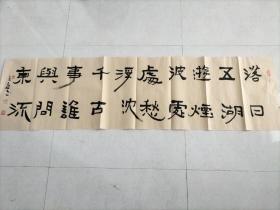 落日
五湖
遊煙
波處
處愁
浮沈
千古
事誰
與問
東流